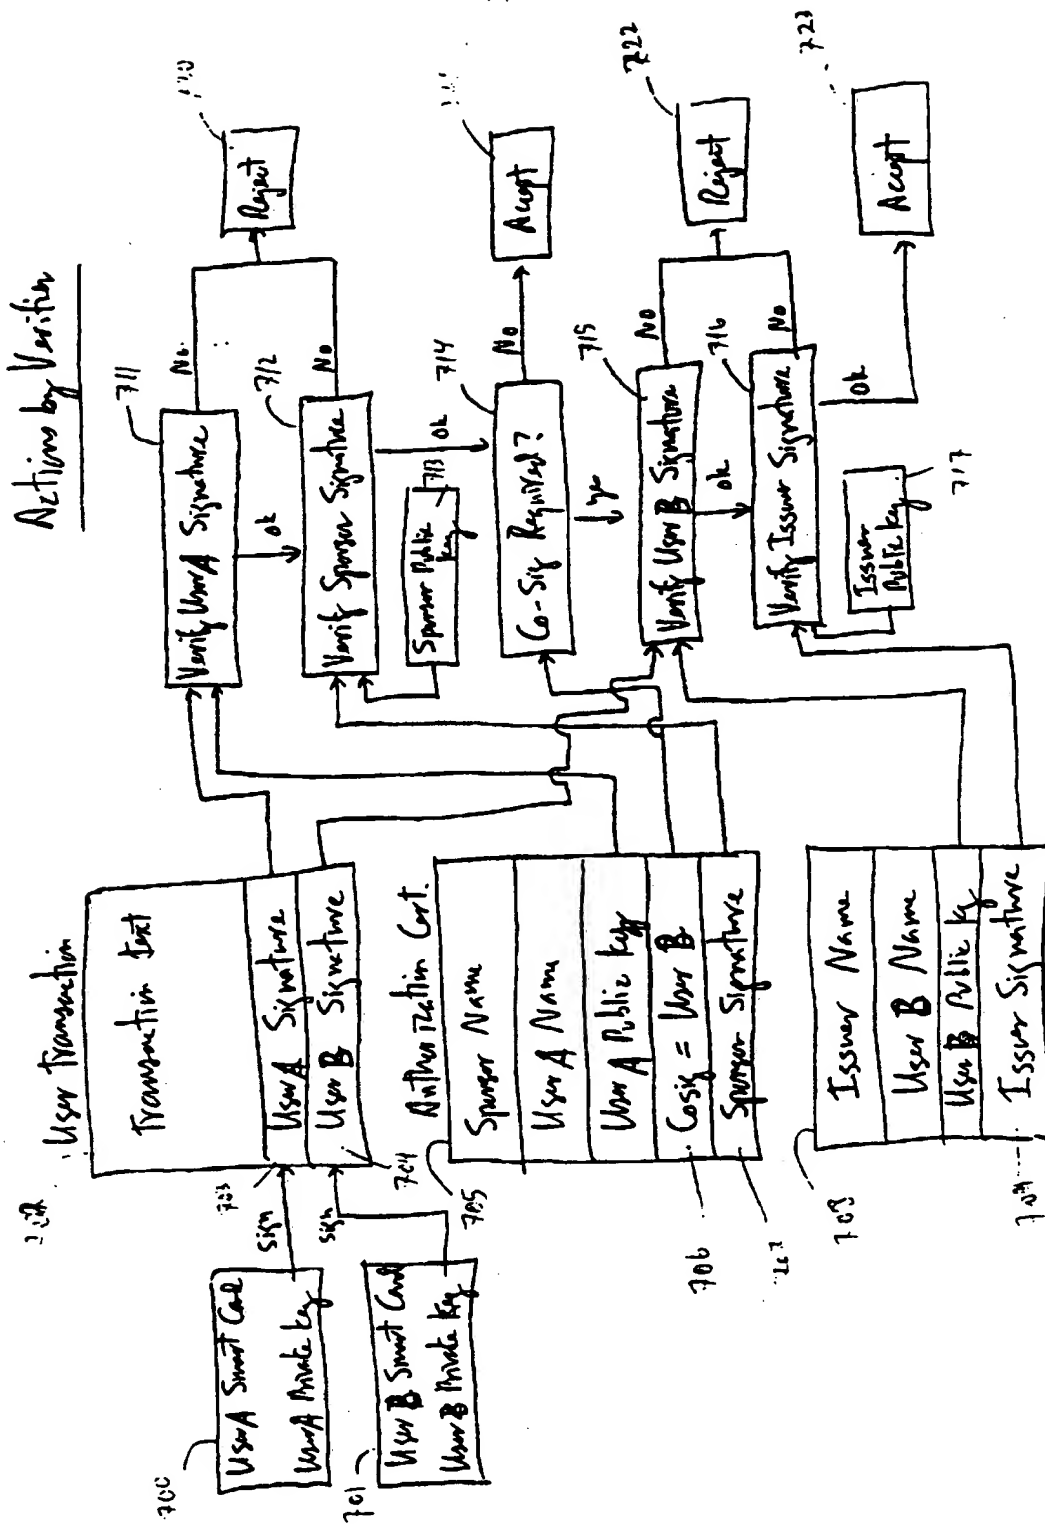 Actions by Verifier
700
User A Smart Card
User A Private Key
701
User B Smart Card
User B Private Key
sign
sign
User Transaction
Transaction text
703
User A Signature
User B Signature
704
Authorization Cert.
705
Sponsor Name
User A Name
User A Public Key
Cosig = User B
Sponsor Signature
706
708
Issuer Name
User B Name
User B Public Key
Issuer Signature
709
711
Verify User A Signature
No
ok
712
Verify Sponsor Signature
No
ok
Sponsor Public
Key
713
714
Co-Sig Required?
No
yes
715
Verify User B Signature
No
ok
716
Verify Issuer Signature
No
ok
Issuer
Public Key
717
Reject
Accept
722
Reject
723
Accept